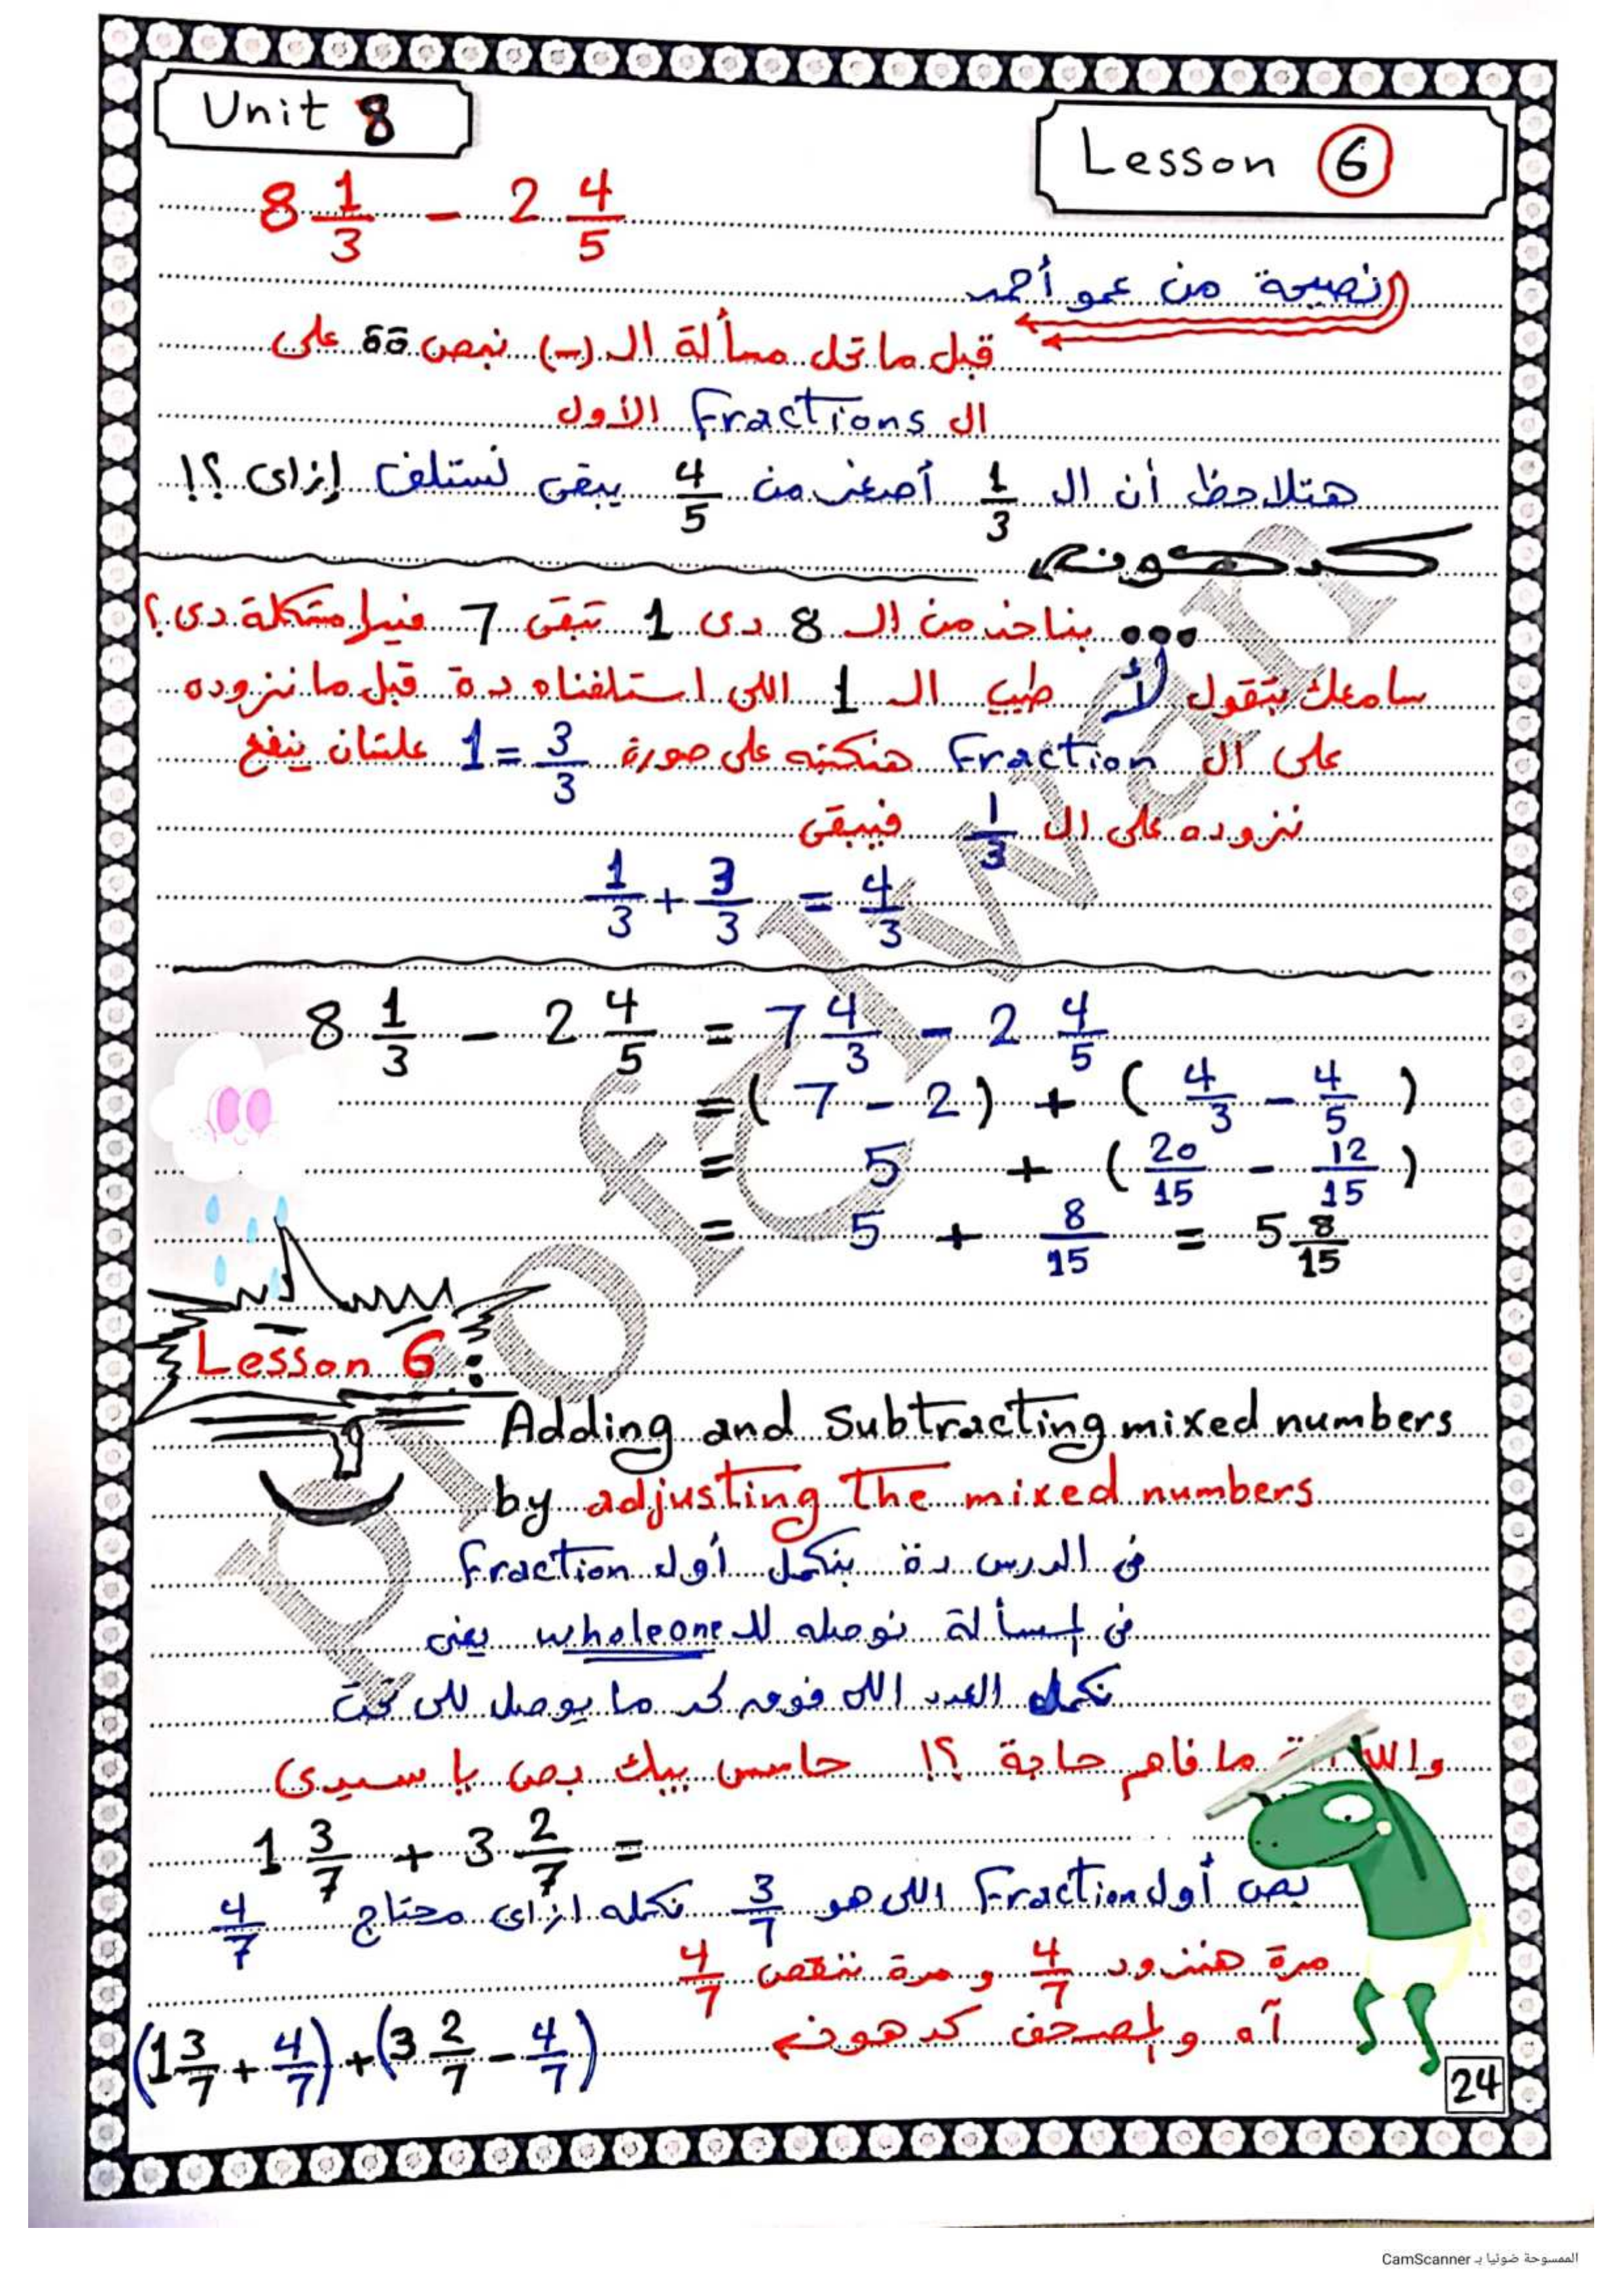 Unit 8
Lesson 6
8 1/3 - 2 4/5
نصيحة من عمو أحمد
قبل ما تحل مسألة ال (-) نبص كدة على
ال Fractions الأول
هتلاحظ أن ال 1/3 أصغر من 4/5 يبقى نستلف إزاى ؟!
كدهونه
... بناخد من ال 8 دى 1 تبقى 7 فيها مشكلة دى ؟
سامعك بتقول لأ طيب ال 1 اللى استلفناه دة قبل ما نزوده
على ال Fraction هنكتبه على صورة 1 = 3/3 علشان ينفع
نزوده على ال 1/3 فيبقى
1/3 + 3/3 = 4/3
8 1/3 - 2 4/5 = 7 4/3 - 2 4/5
= ( 7 - 2 ) + ( 4/3 - 4/5 )
= 5 + ( 20/15 - 12/15 )
= 5 + 8/15 = 5 8/15
Lesson 6 :
Adding and Subtracting mixed numbers
by adjusting The mixed numbers
فى الدرس دة بنكمل أول Fraction
فى المسألة نوصله لل whole one يعنى
نكمل العدد اللى فوق لحد ما يوصل للى تحت
والله ما فاهم حاجة ؟! حاسس بيك بص يا سيدى
1 3/7 + 3 2/7 =
بص أول Fraction اللى هو 3/7 نكمله ازاى محتاج 4/7
مرة هنزود 4/7 و مرة ننقص 4/7
آه و المصحف كدهونه
(1 3/7 + 4/7) + (3 2/7 - 4/7)
24
المسوحة ضوئيا بـ CamScanner